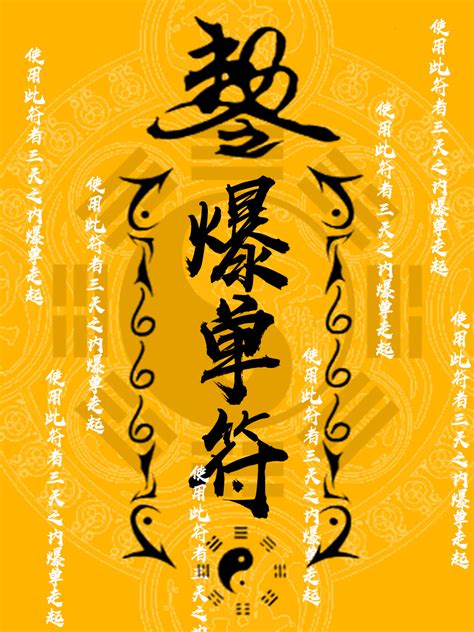 爆单符
使用此符者三天之内爆单走起
使用此符者三天之内爆单走起
使用此符者三天之内爆单走起
使用此符者三天之内爆单走起
使用此符者三天之内爆单走起
使用此符者三天之内爆单走起
使用此符者三天之内爆单走起